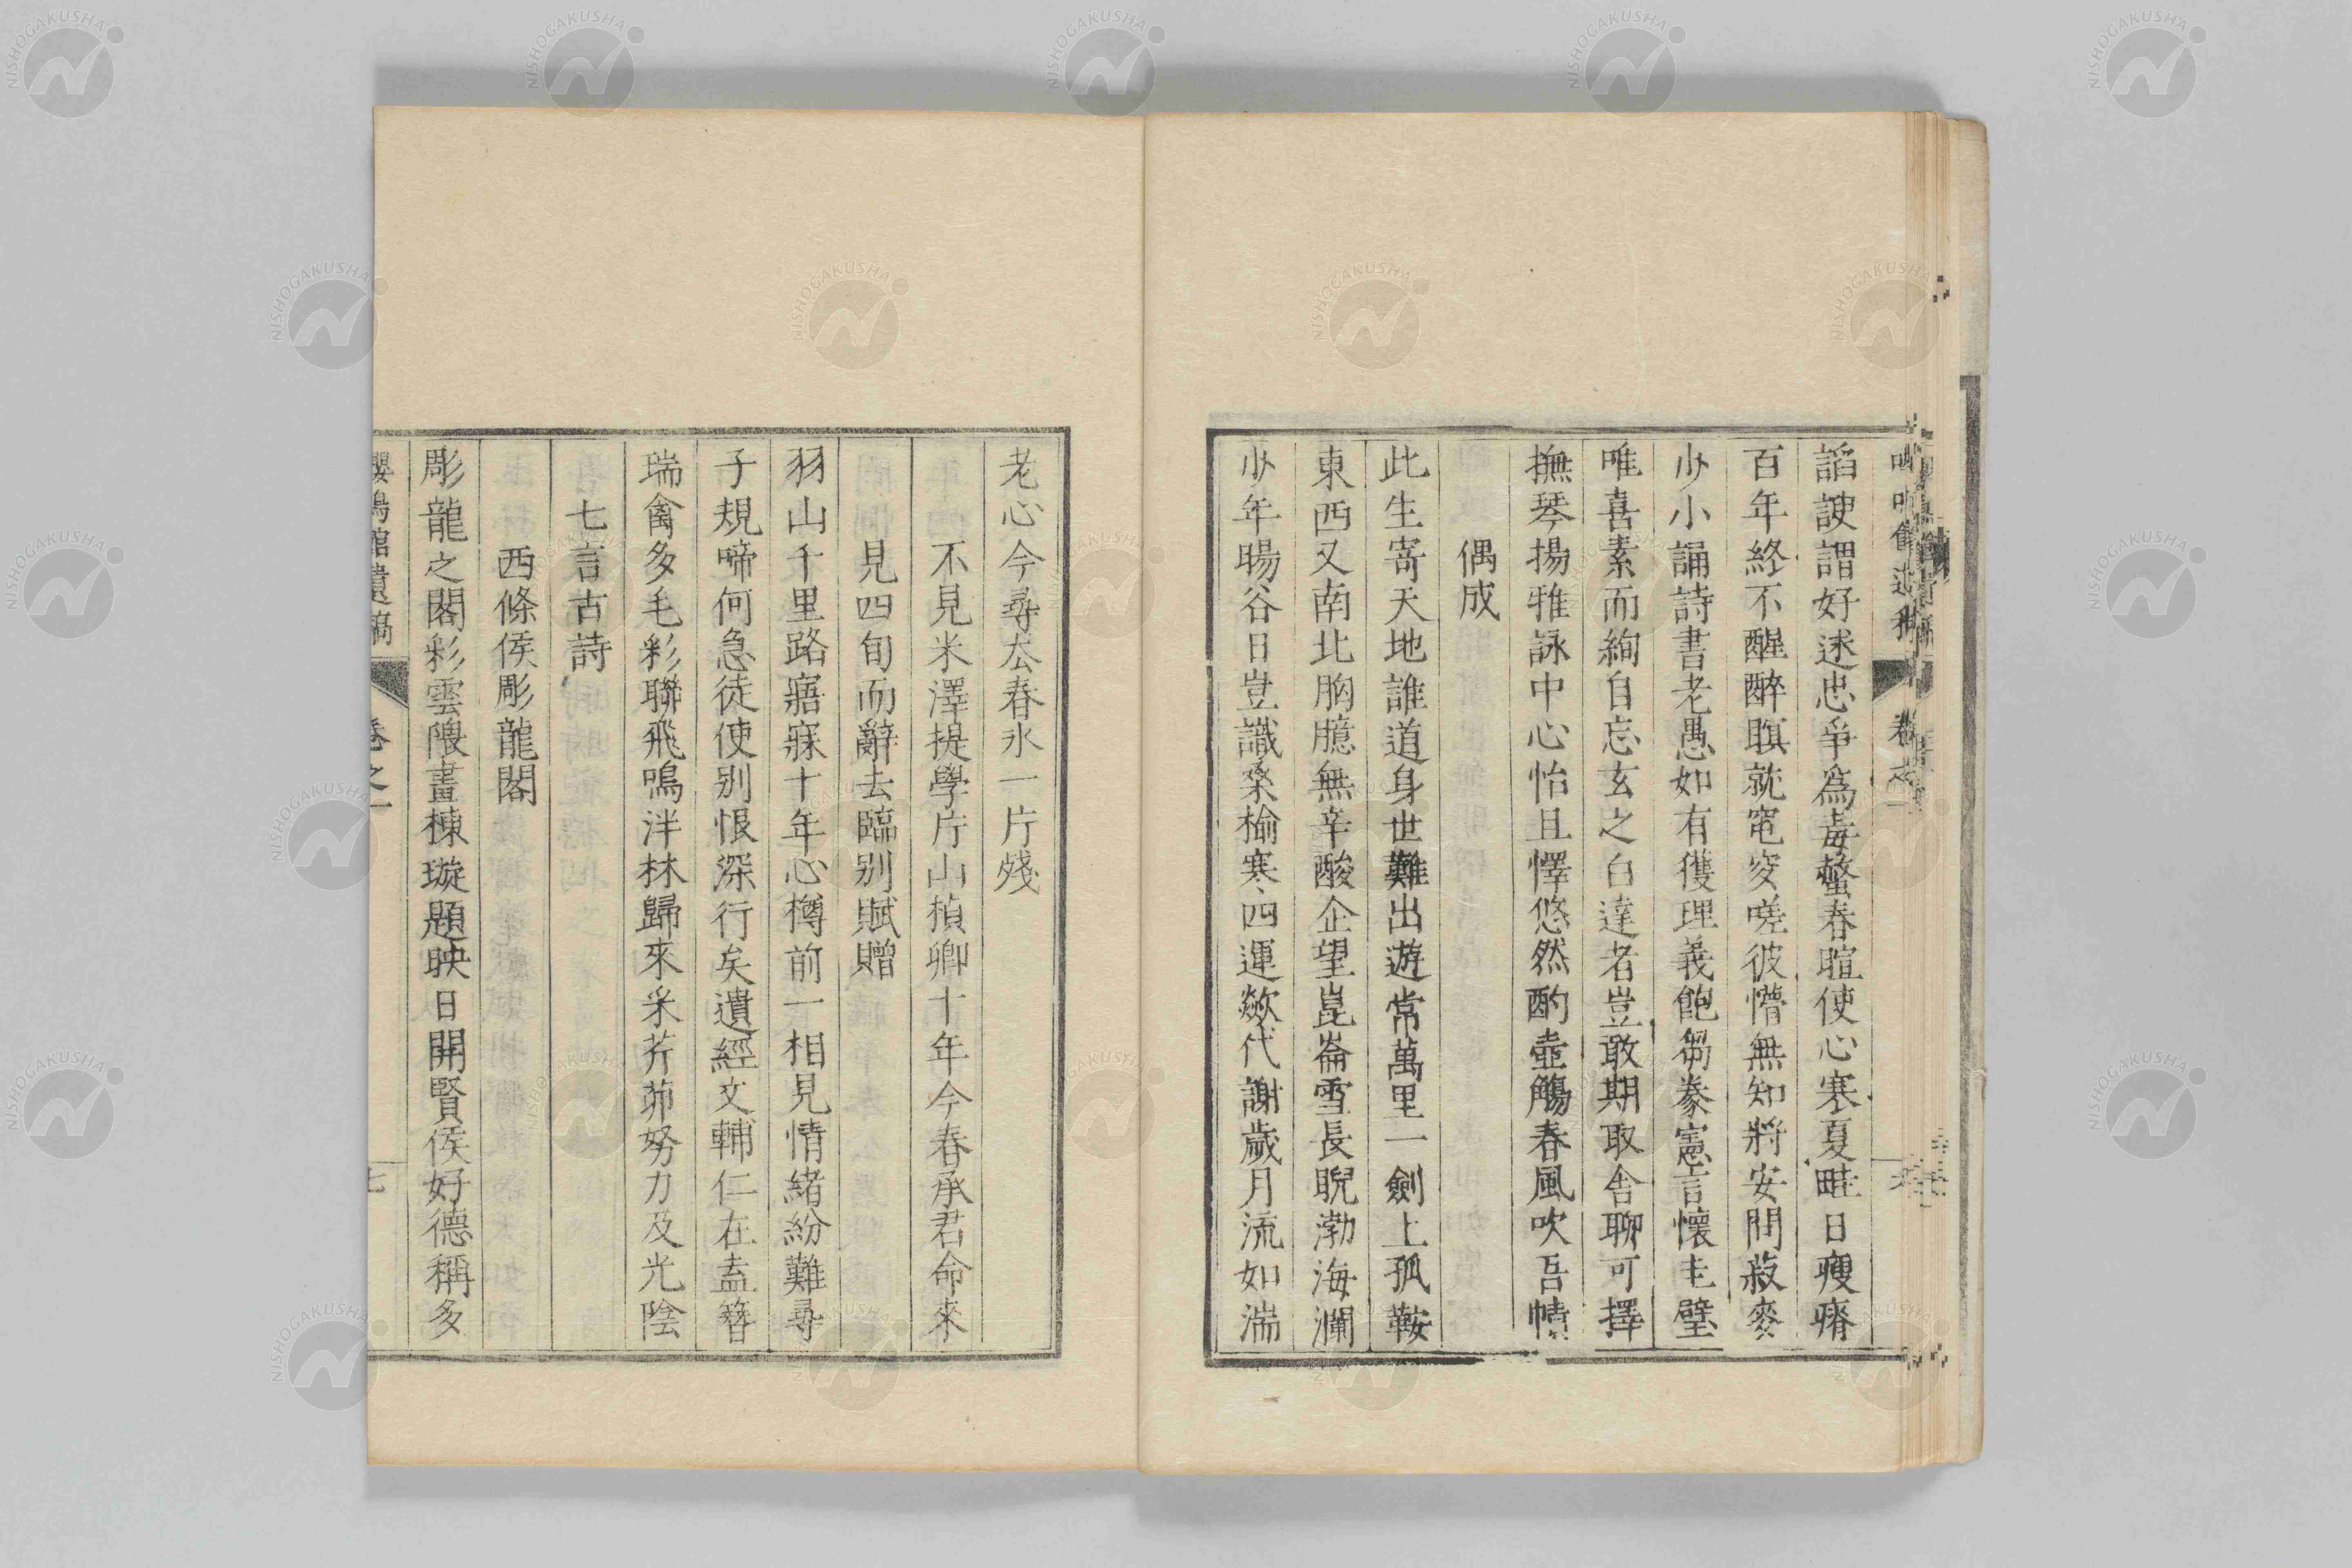 諂諛謂好逑忠爭為毒螫春暄使心寒夏畦日瘦瘠
百年終不醒醉瞑就窀穸嗟彼懵無知將安問菽麥
少小誦詩書老愚如有獲理義飽芻豢憲言懷圭璧
唯喜素而絢自忘玄之白達者豈敢期取舍聊可擇
撫琴揚雅詠中心怡且懌悠然酌壺觴春風吹吾幘
偶成
此生寄天地誰道身世難出遊常萬里一劍上孤鞍
東西又南北胸臆無辛酸企望崑崙雪長睨渤海瀾
少年暘谷日豈識桑榆寒四運歘代謝歲月流如湍
老心今尋厺春氷一片殘
不見米澤提學片山楨卿十年今春承君命來
見四旬而辭去臨別賦贈
羽山千里路寤寐十年心樽前一相見情緒紛難尋
子規啼何急徒使別恨深行矣遺經文輔仁在盍簪
瑞禽多毛彩聯飛鳴泮林歸來采芹茆努力及光陰
七言古詩
西條侯彫龍閣
彫龍之閣彩雲隈畫棟璇題映日開賢侯好德稱多
嚶鳴館遺稿 卷之一 七
NISHOGAKUSHA